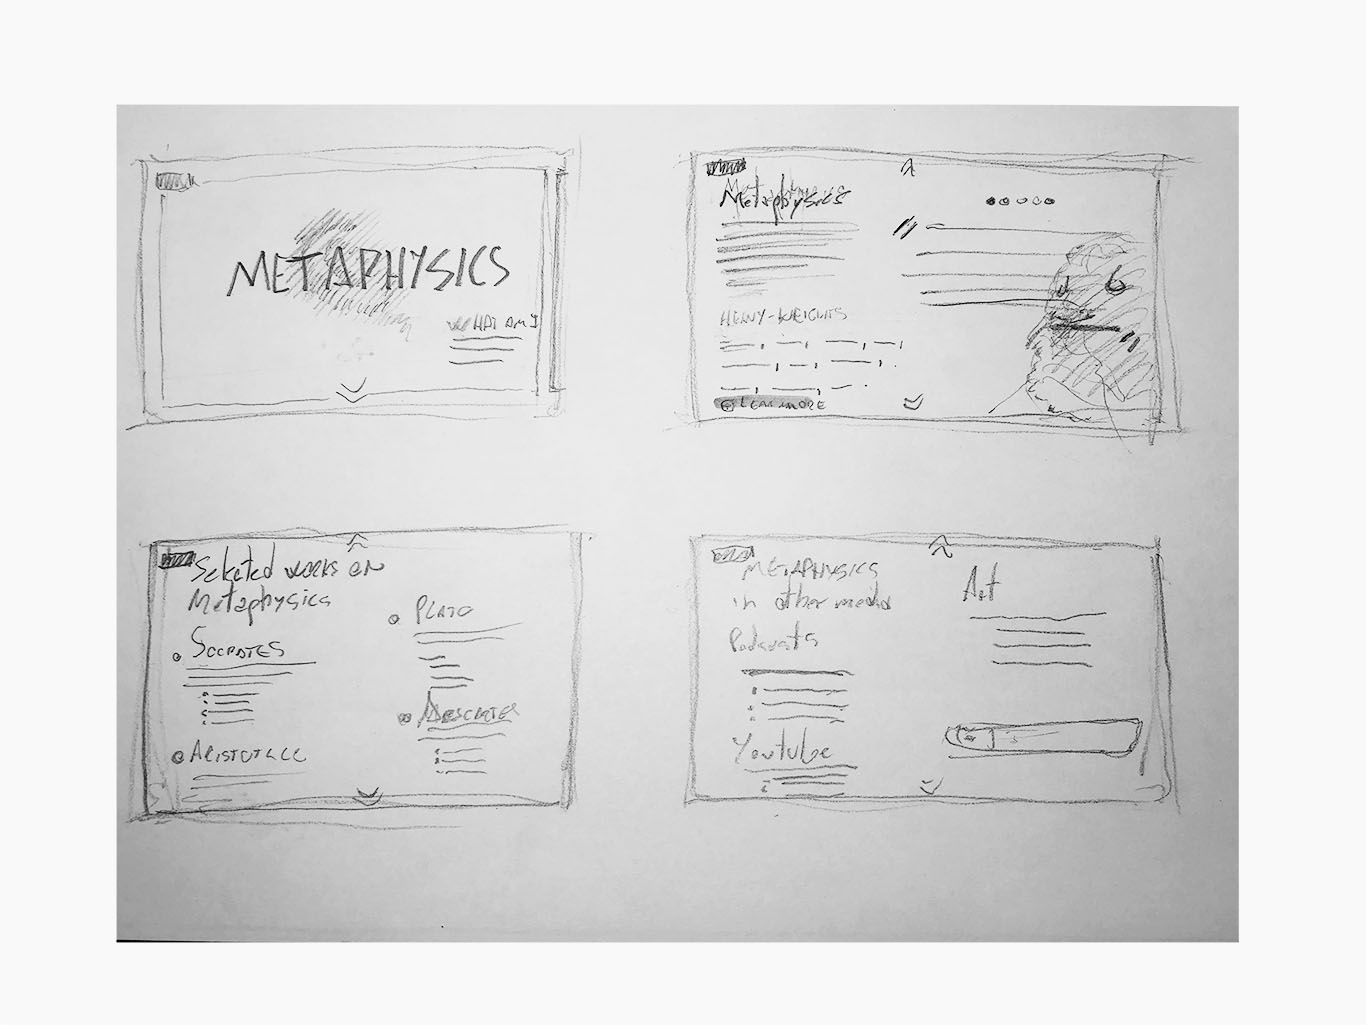 METAPHYSICS
WHAT AM I
Metaphysics
HEAVY-WEIGHTS
LEARN MORE
Selected works on
Metaphysics
SOCRATES
PLATO
DESCARTES
METAPHYSICS
in other media
Podcasts
Youtube
Art